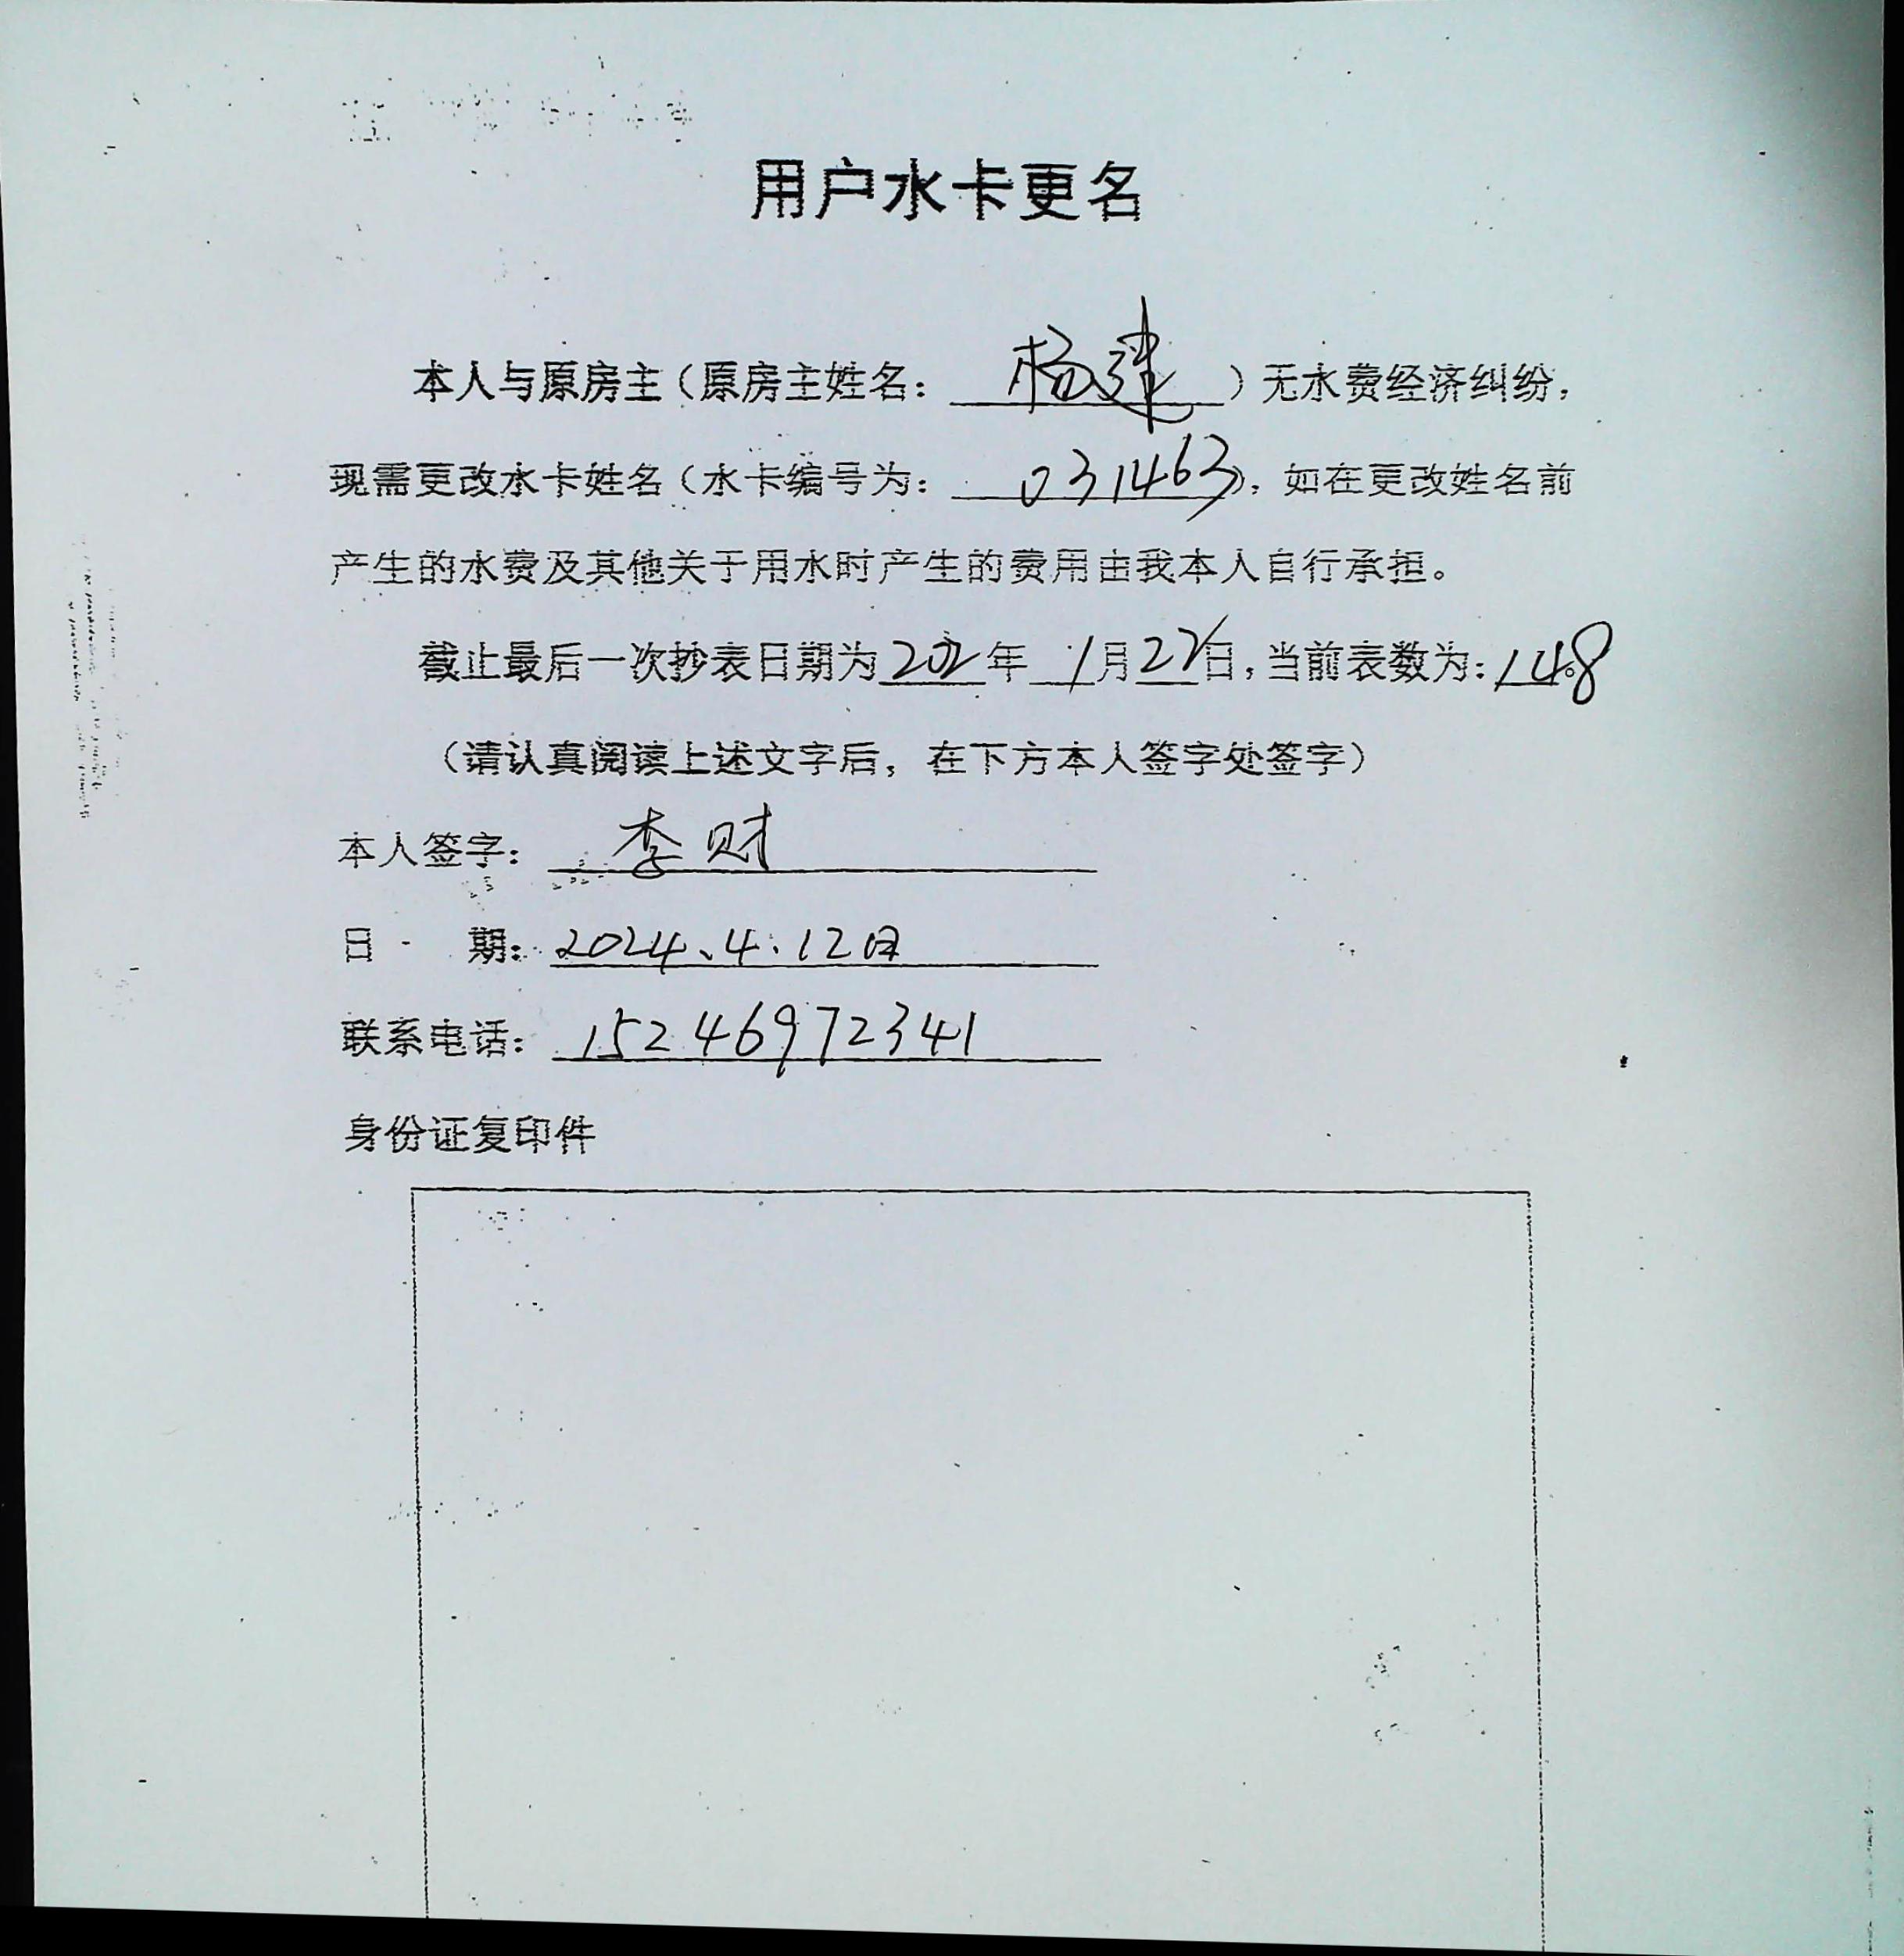 用户水卡更名
本人与原房主（原房主姓名：杨建）无水费经济纠纷，
现需更改水卡姓名（水卡编号为：031463），如在更改姓名前
产生的水费及其他关于用水时产生的费用由我本人自行承担。
截止最后一次抄表日期为 年 1月 日，当前表数为：148
（请认真阅读上述文字后，在下方本人签字处签字）
本人签字：李财
日 期：2024、4.12日
联系电话：15246972341
身份证复印件